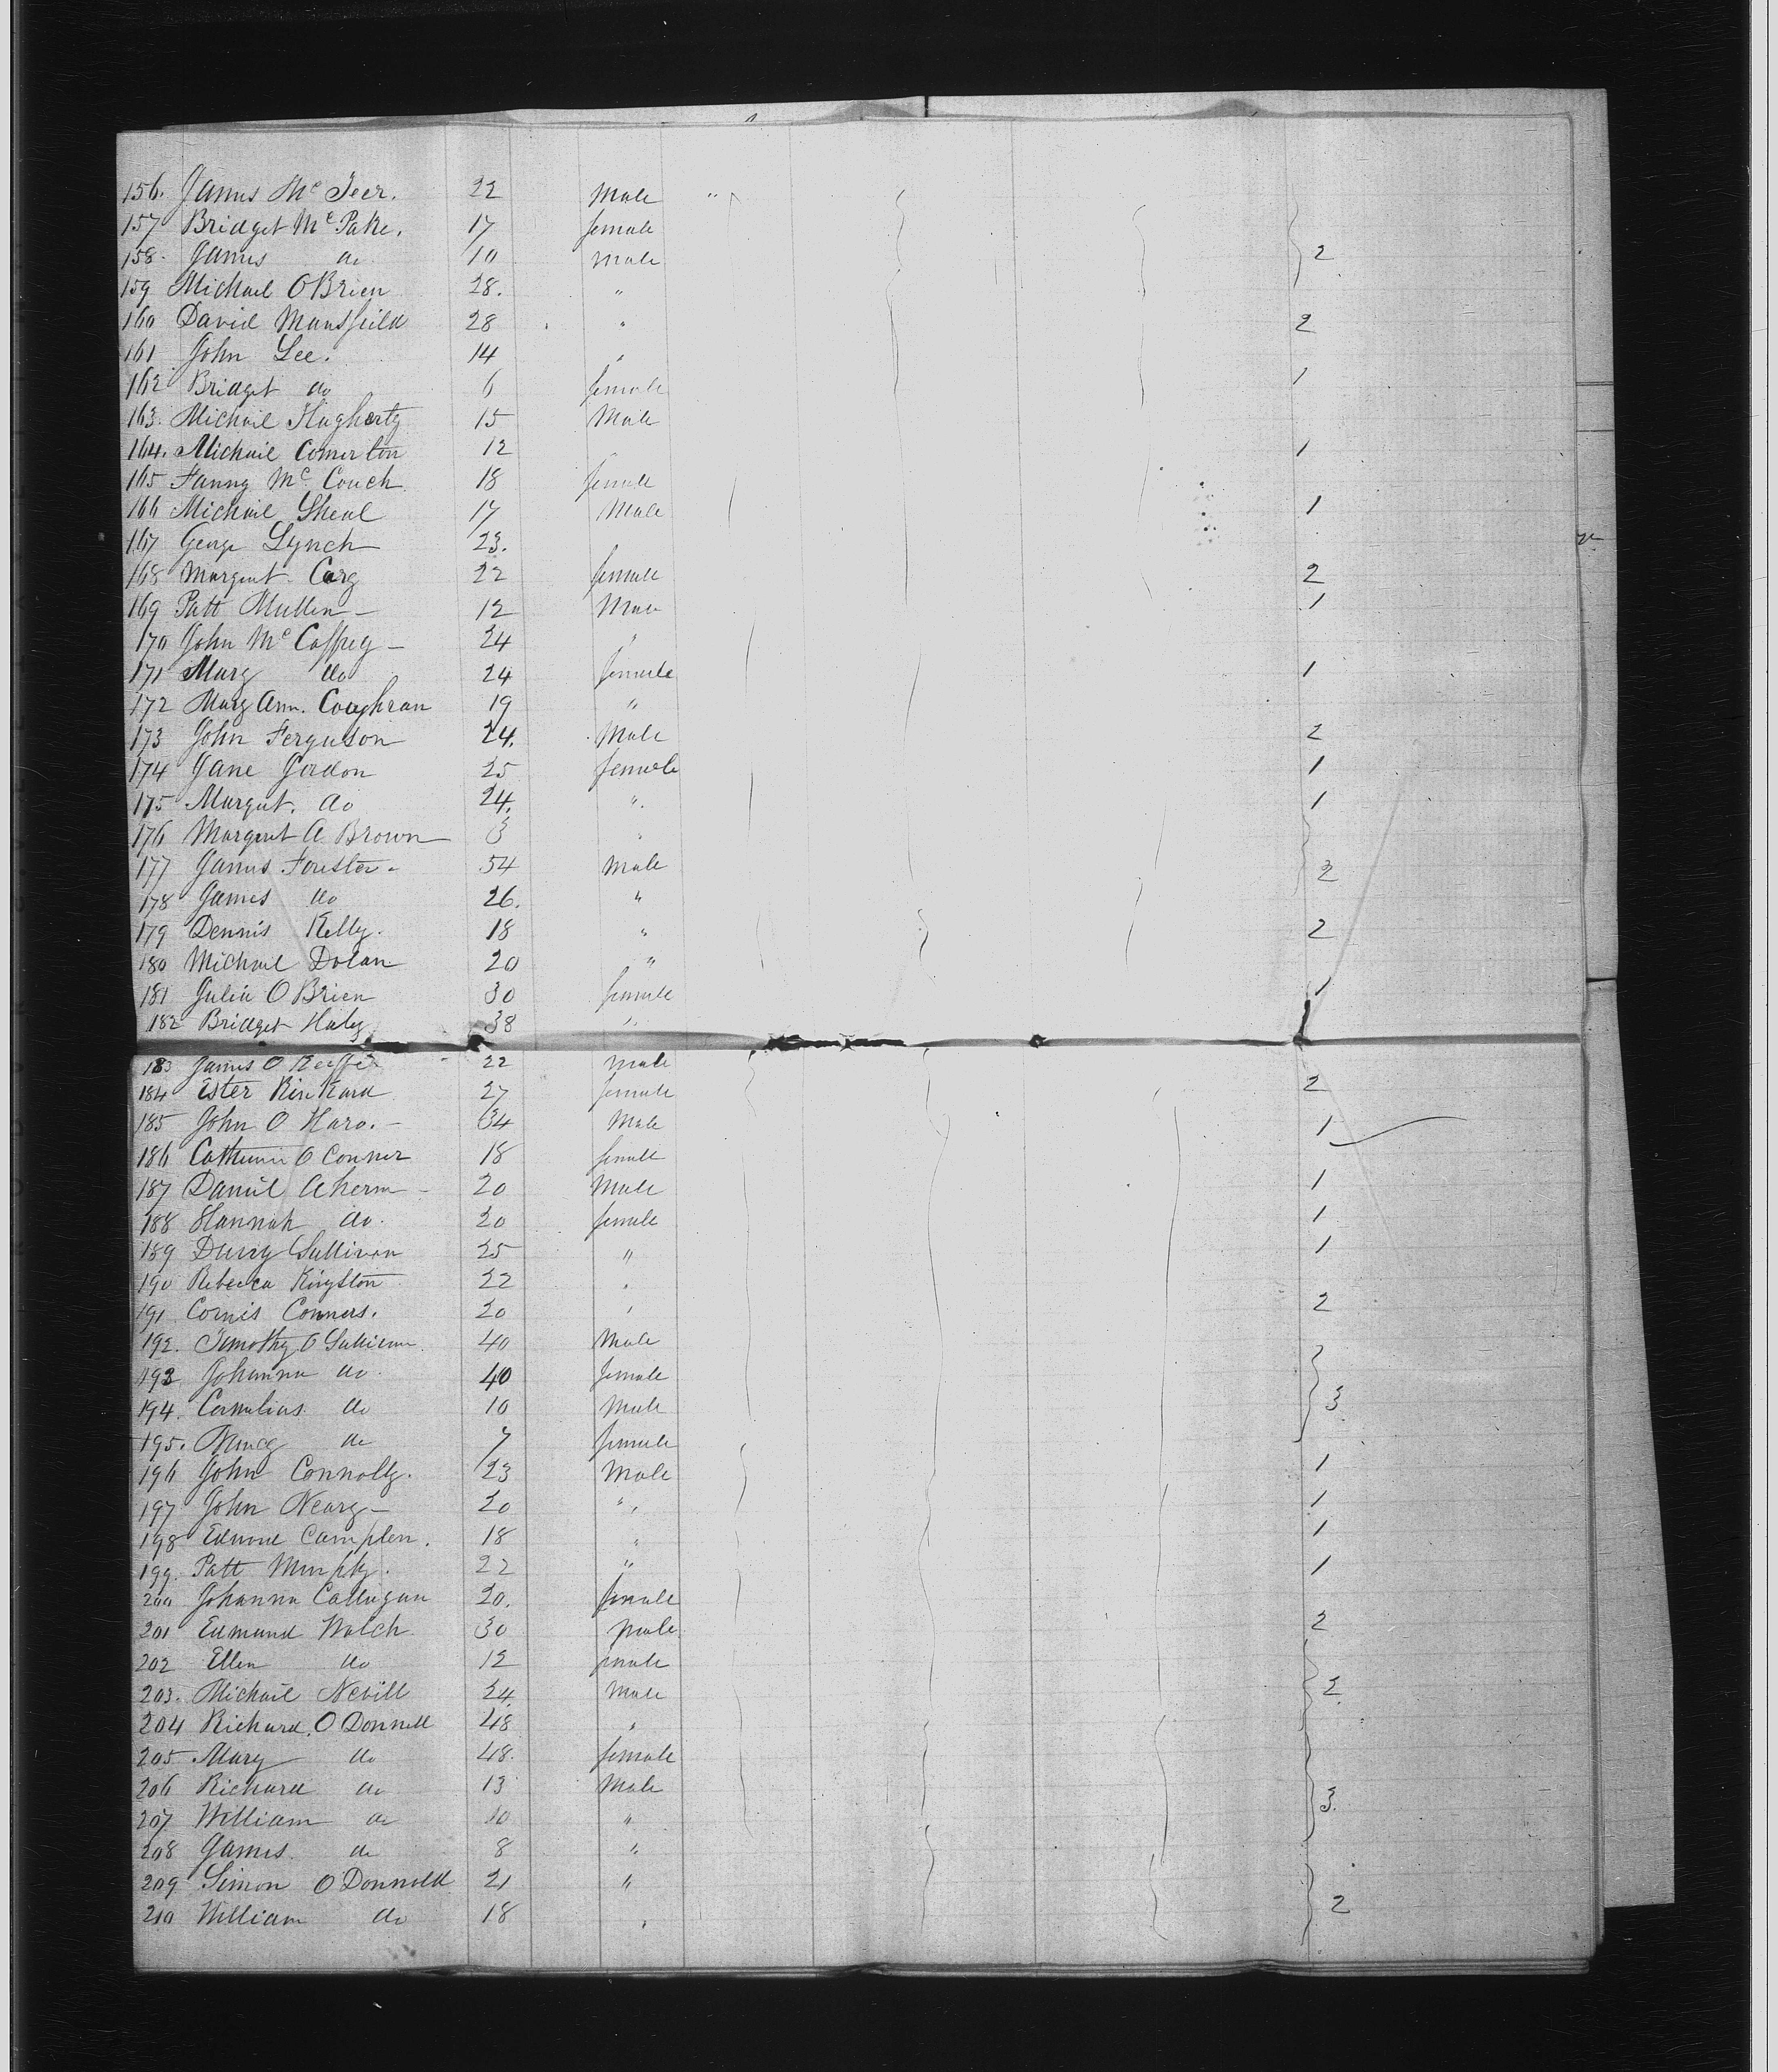 156. James Mc Teer. 22 Male "
157 Bridget Mc Pake. 17 female
158. James do 10 Male 2
159 Michael O Brien 28. "
160 David Mansfield 28 " 2
161 John Lee. 14 "
162 Bridget do 6 female 1
163. Michail Flagherty 15 Male
164. Michail Comerton 12 1
165 Fanny Mc Couch 18 female
166 Michail Sheal 17 Male 1
167 George Lynch 23.
168 Margaret Cary 22 female 2
169 Patt Mullen 12 Male 1
170 John Mc Caffrey 24 "
171 Mary do 24 female 1
172 Mary Ann. Coughran 19 "
173 John Ferguson 24. Male 2
174 Jane Gordon 25 female 1
175 Margret. do 24. " 1
176 Margaret A Brown 3 "
177 James Forister 54 Male 2
178 James do 26. "
179 Dennis Kelly. 18 " 2
180 Michael Dolan 20 "
181 Julia O Brien 30 female 1
182 Bridget Haley 38 "
183 James O Keiffe 22 male
184 Ester Kinkard 27 female 2
185 John O Hara. 34 Male 1
186 Catherine O Conner 18 female
187 Daniel Aherm 20 Male 1
188 Hannah do. 20 female 1
189 Sullivan 25 " 1
190 Rebecca Kingston 22 "
191 Cornis Conners. 20 " 2
192. Timothy O Sullivan 40 Male
193 Johanna do. 40 female
194. Cornelius do 10 Male 3
195. Nancy do 7 female
196 John Connolly. 23 Male 1
197 John Neary 20 " 1
198 Edmond Camplen. 18 " 1
199. Patt Murphy. 22 " 1
200 Johanna Callagan 20. female
201 Edmund Walch 30 male 2
202 Ellen do 12 female
203. Michail Nevill 24. Male 2
204 Richard. O Donnell 48 "
205 Mary do 48. female
206 Richard do 13 Male
207 William do 10 " 3.
208 James. do 8 "
209 Simon O Donnold 21 "
210 William do 18 " 2